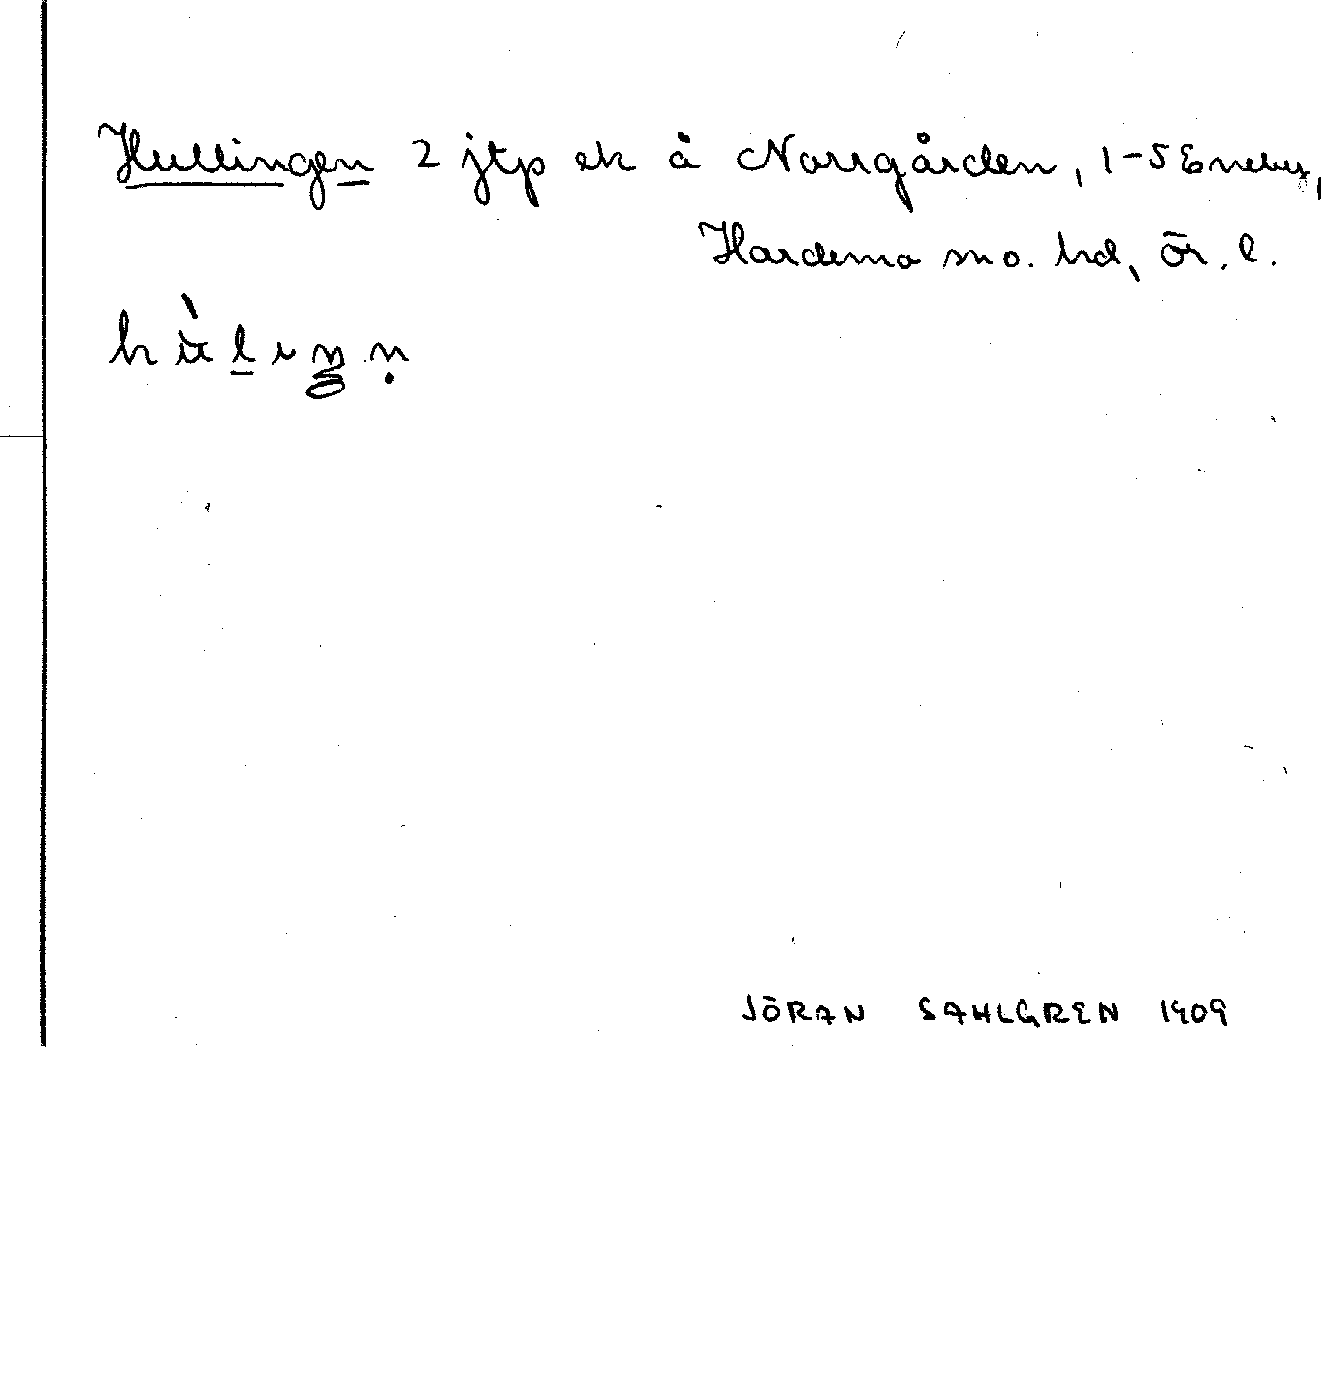 Hullingen 2 jtp ek å Norrgården, 1-5 Eneby,
Hardemo sn o. hd, Ör. l.
hùlıŋṇ
JÖRAN SAHLGREN 1909